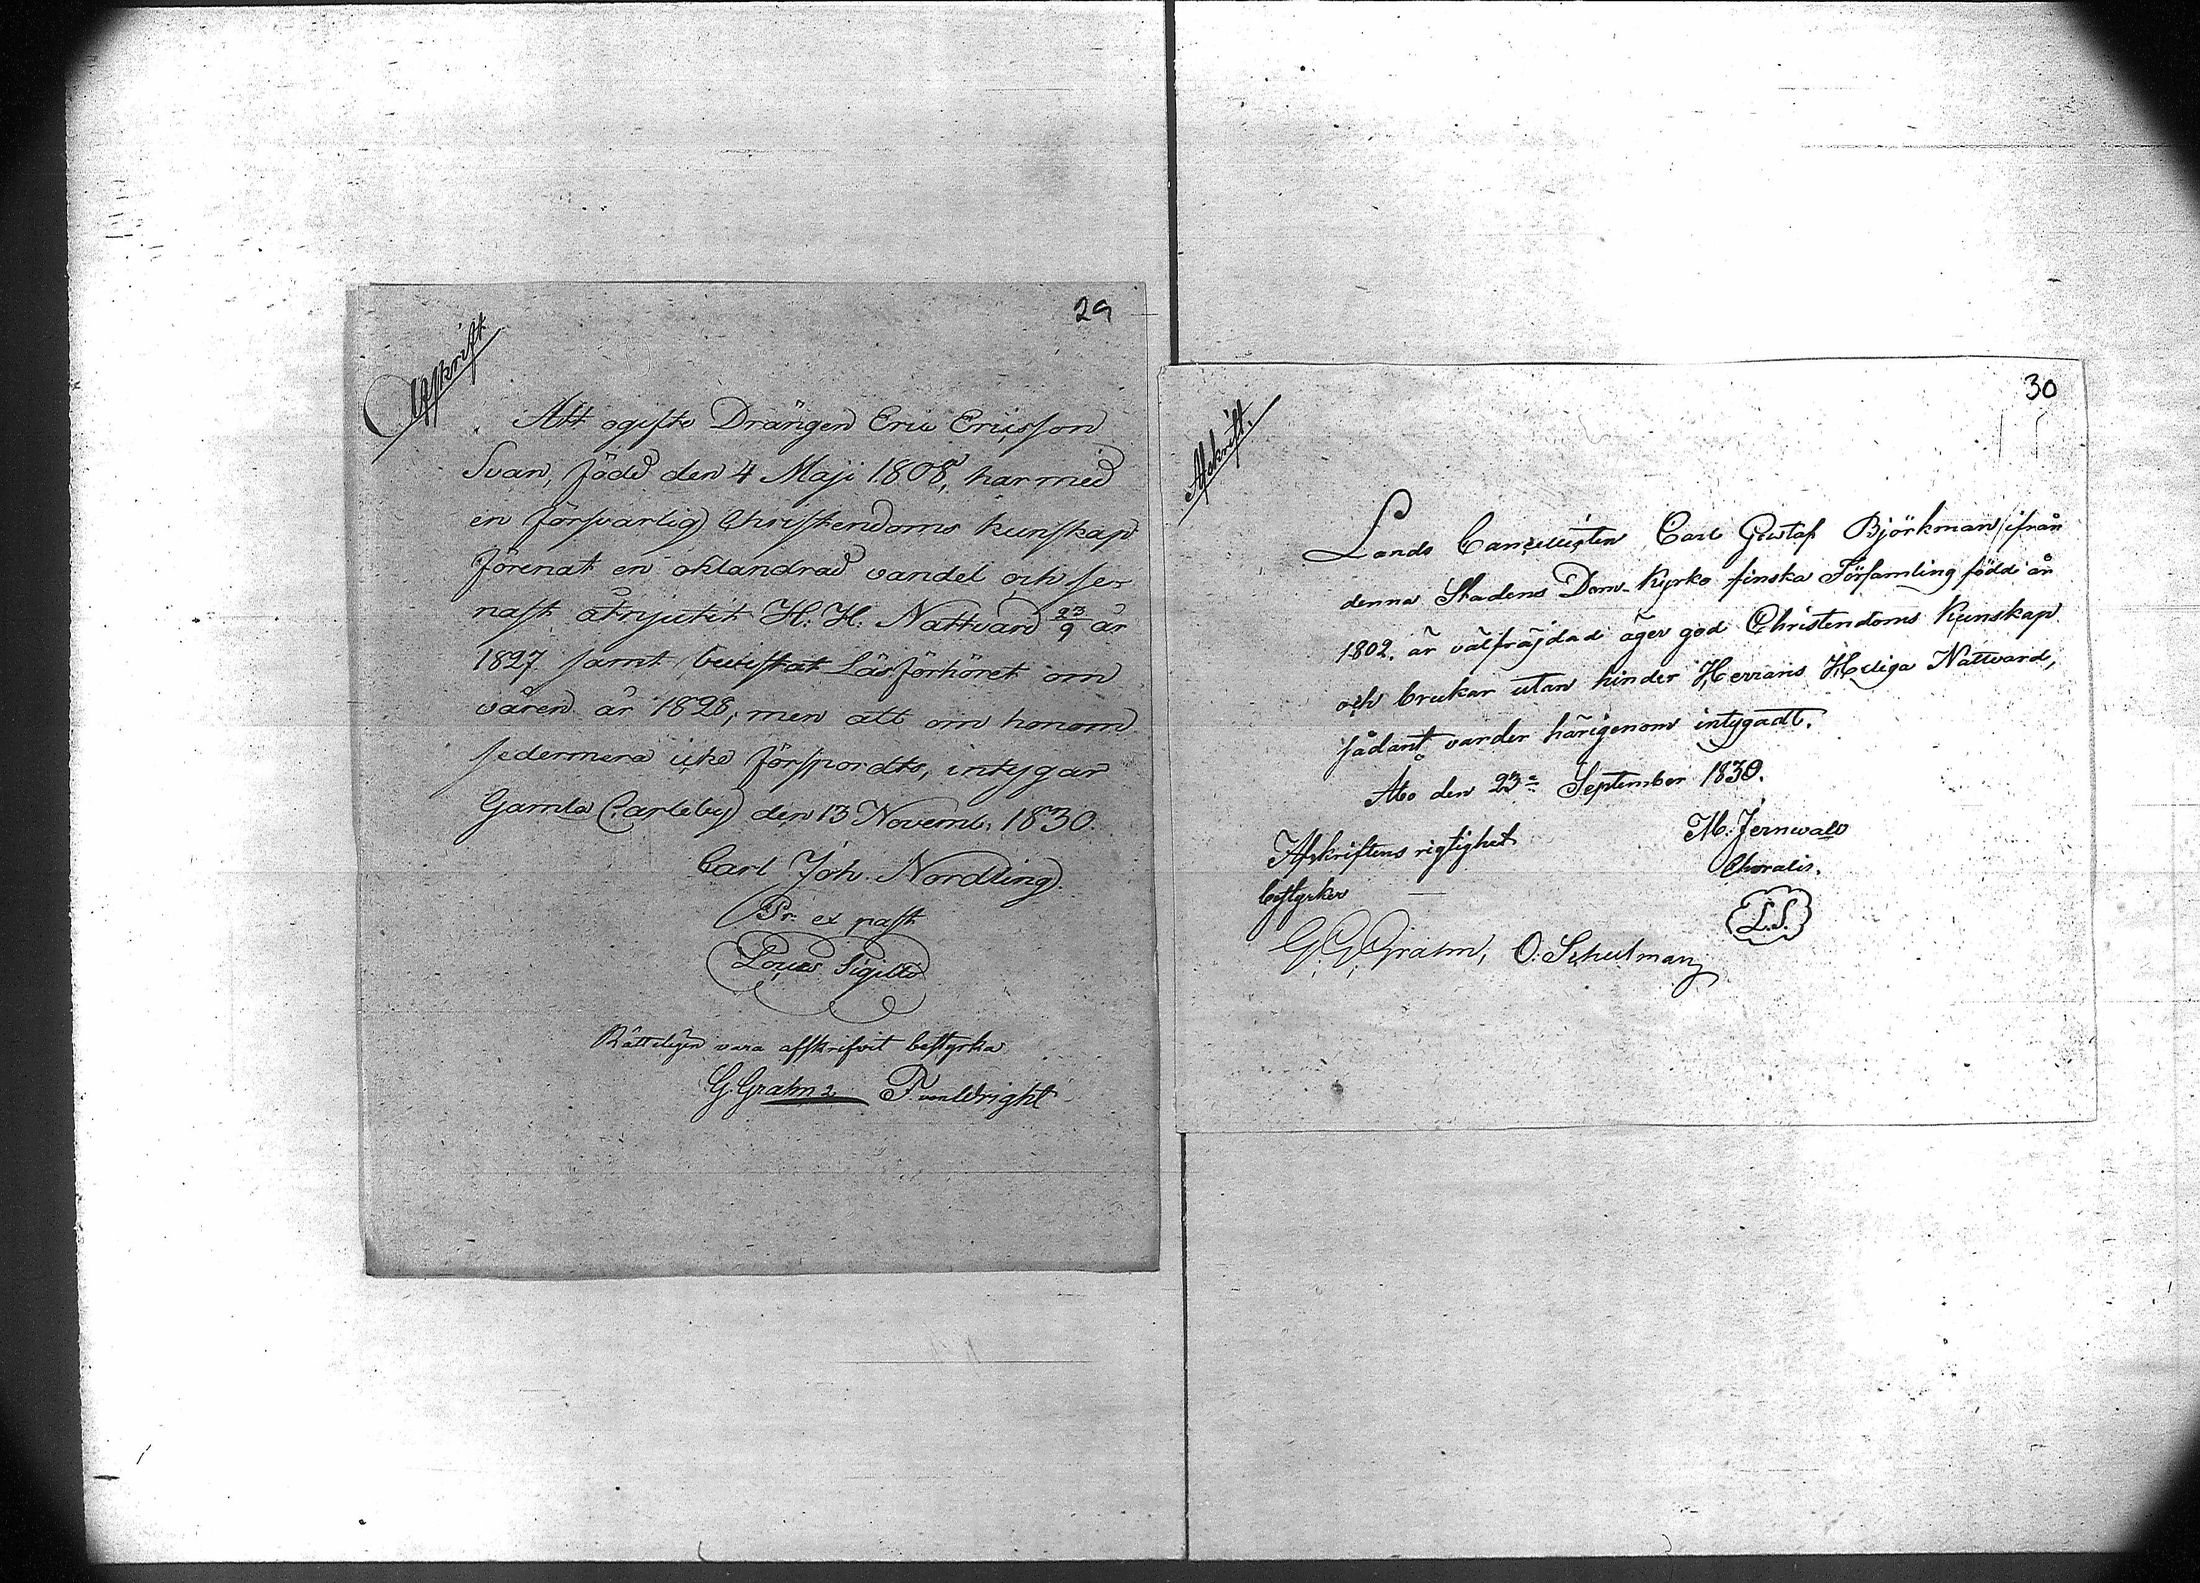 29
Afskrift
Att ogifte Drängen Eric Ericsson
Svan, född den 4 Maji 1808, har med
en försvarlig Christendoms kunskap
förenat en oklandrad vandel och se-
nast åtnjutit H. H. Nattvard 23/9 år
1827 samt bevistat Läsförhöret om
våren år 1828, men att om honom
sedermera icke försports, intygar
Gamla Carleby den 13 Novemb. 1830.
Carl Joh. Nordling.
Pr. ex past
Locus Sigilli
Rätteligen vara afskrifvit bestyrka
G. Grahn 2. F. von Wright
30
Afskrift.
Lands Cancellisten Carl Gustaf Björkman, ifrån
denna Stadens Dom-Kyrko finska Församling född år
1802. är välfräjdad äger god Christendoms Kunskap
och brukar utan hinder Herrans Heliga Nattvard,
sådant varder härigenom intygadt.
Åbo den 23: September 1830.
M. Jernwald
Choralis.
L.S.
Afskriftens rigtighet
bestyrker
G. G. Grahn, O. Schulman